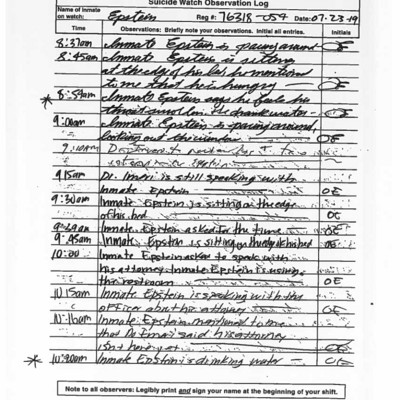 Suicide Watch Observation Log
Name of inmate on watch: Epstein Reg #: 76318-054 Date: 07-23-19
Time Observations: Briefly note your observations. Initial all entries. Initials
8:37am Inmate Epstein is pacing around OE
8:45am Inmate Epstein is sitting
at the edge of his bed he mentioned
to me that he's hungry OE
* 8:59am Inmate Epstein says he feels his
9:00am Inmate Epstein is pacing around,
looking out the window OE
9:10am
9:15am Dr. is still speaking with
Inmate Epstein OE
9:30am Inmate Epstein is sitting on the edge
of his bed OE
Inmate Epstein asked for the time OE
9:45am Inmate Epstein is sitting on the edge of his bed OE
10:00 Inmate Epstein asked to speak with
his attorney. Inmate Epstein is using
the restroom OE
10:15am Inmate Epstein is speaking with the
officer about his attorney OE
10:16am Inmate Epstein mentioned to me
that his attorney
isn't here yet OE
* 10:20am Inmate Epstein is drinking water OE
Note to all observers: Legibly print and sign your name at the beginning of your shift.